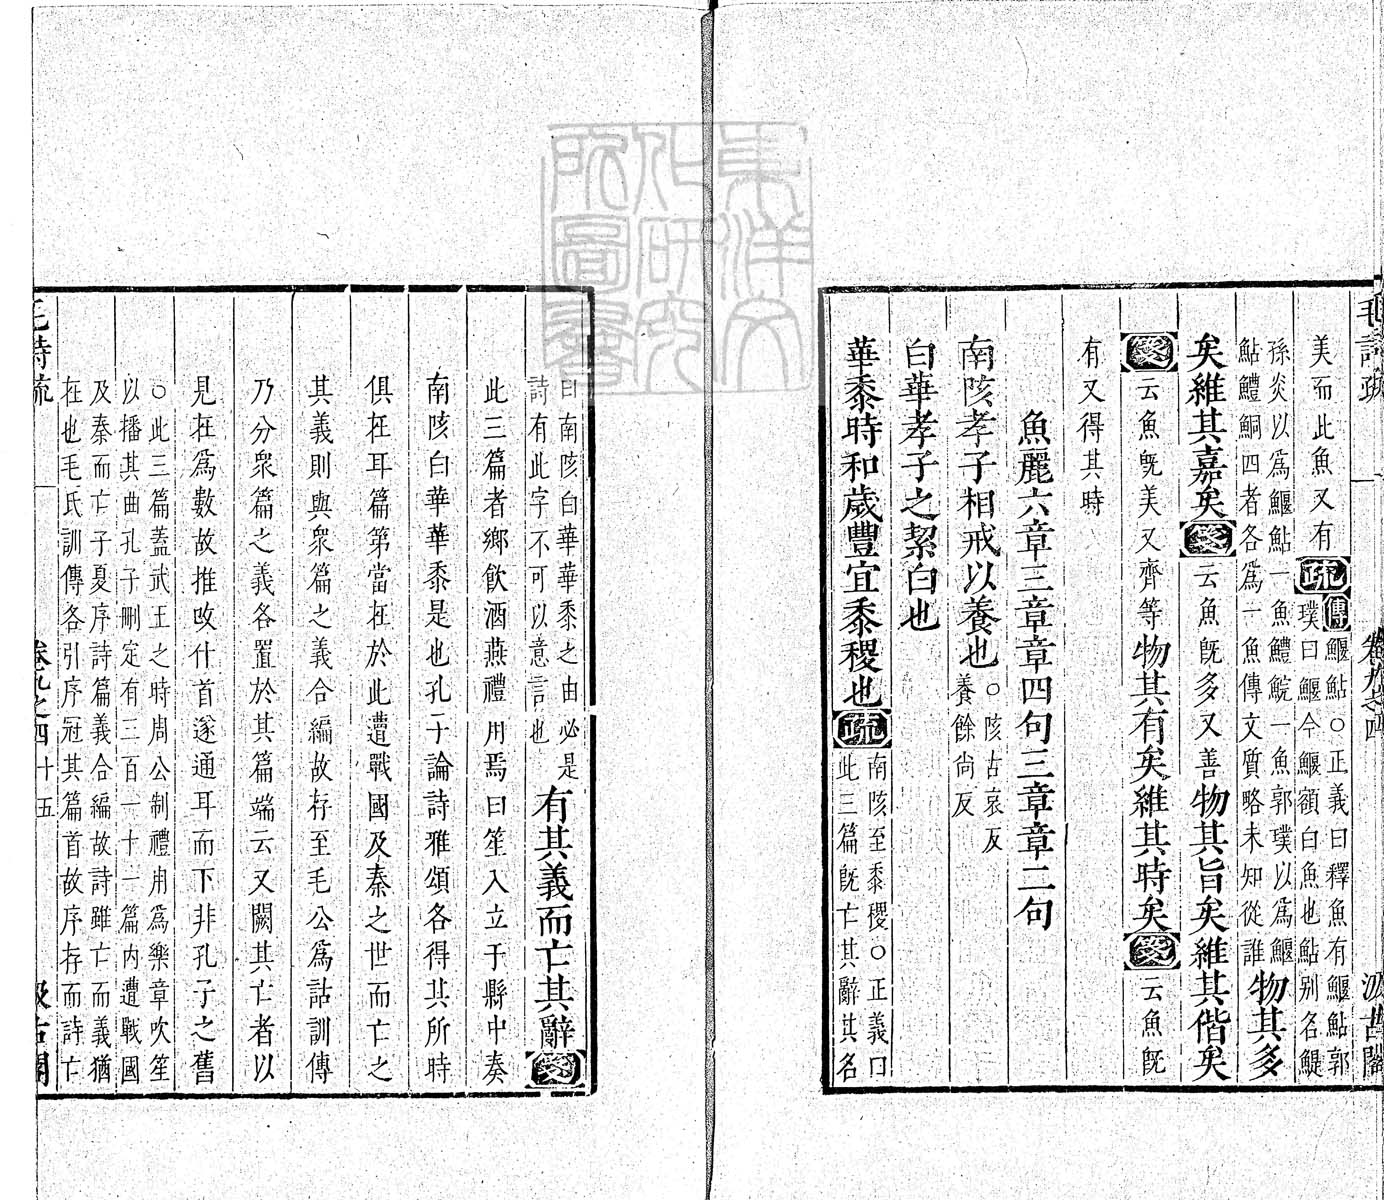 毛詩疏 卷九之四 汲古閣
美而此魚又有疏傳鰋鮎○正義曰釋魚有鰋鮎郭
璞曰鰋今鰋額白魚也鮎别名鯷
孫炎以爲鰋鮎一魚鱧鯇一魚郭璞以爲鰋
鮎鱧鮦四者各爲一魚傳文質略未知從誰物其多
矣維其嘉矣箋云魚旣多又善物其旨矣維其偕矣
箋云魚旣美又齊等物其有矣維其時矣箋云魚旣
有又得其時
魚麗六章三章章四句三章章二句
南陔孝子相戒以養也○陔古哀反
養餘尚反
白華孝子之絜白也
華黍時和歲豐宜黍稷也疏南陔至黍稷○正義曰
此三篇旣亡其辭其名
曰南陔白華華黍之由必是
詩有此字不可以意言也有其義而亡其辭箋
此三篇者鄉飲酒燕禮用焉曰笙入立于縣中奏
南陔白華華黍是也孔子論詩雅頌各得其所時
俱在耳篇第當在於此遭戰國及秦之世而亡之
其義則與衆篇之義合編故存至毛公爲詁訓傳
乃分衆篇之義各置於其篇端云又闕其亡者以
見在爲數故推改什首遂通耳而下非孔子之舊
○此三篇蓋武王之時周公制禮用爲樂章吹笙
以播其曲孔子刪定有三百一十一篇內遭戰國
及秦而亡子夏序詩篇義合編故詩雖亡而義猶
在也毛氏訓傳各引序冠其篇首故序存而詩亡
毛詩疏 卷九之四 十五 汲古閣
東洋文
化研究
所圖書